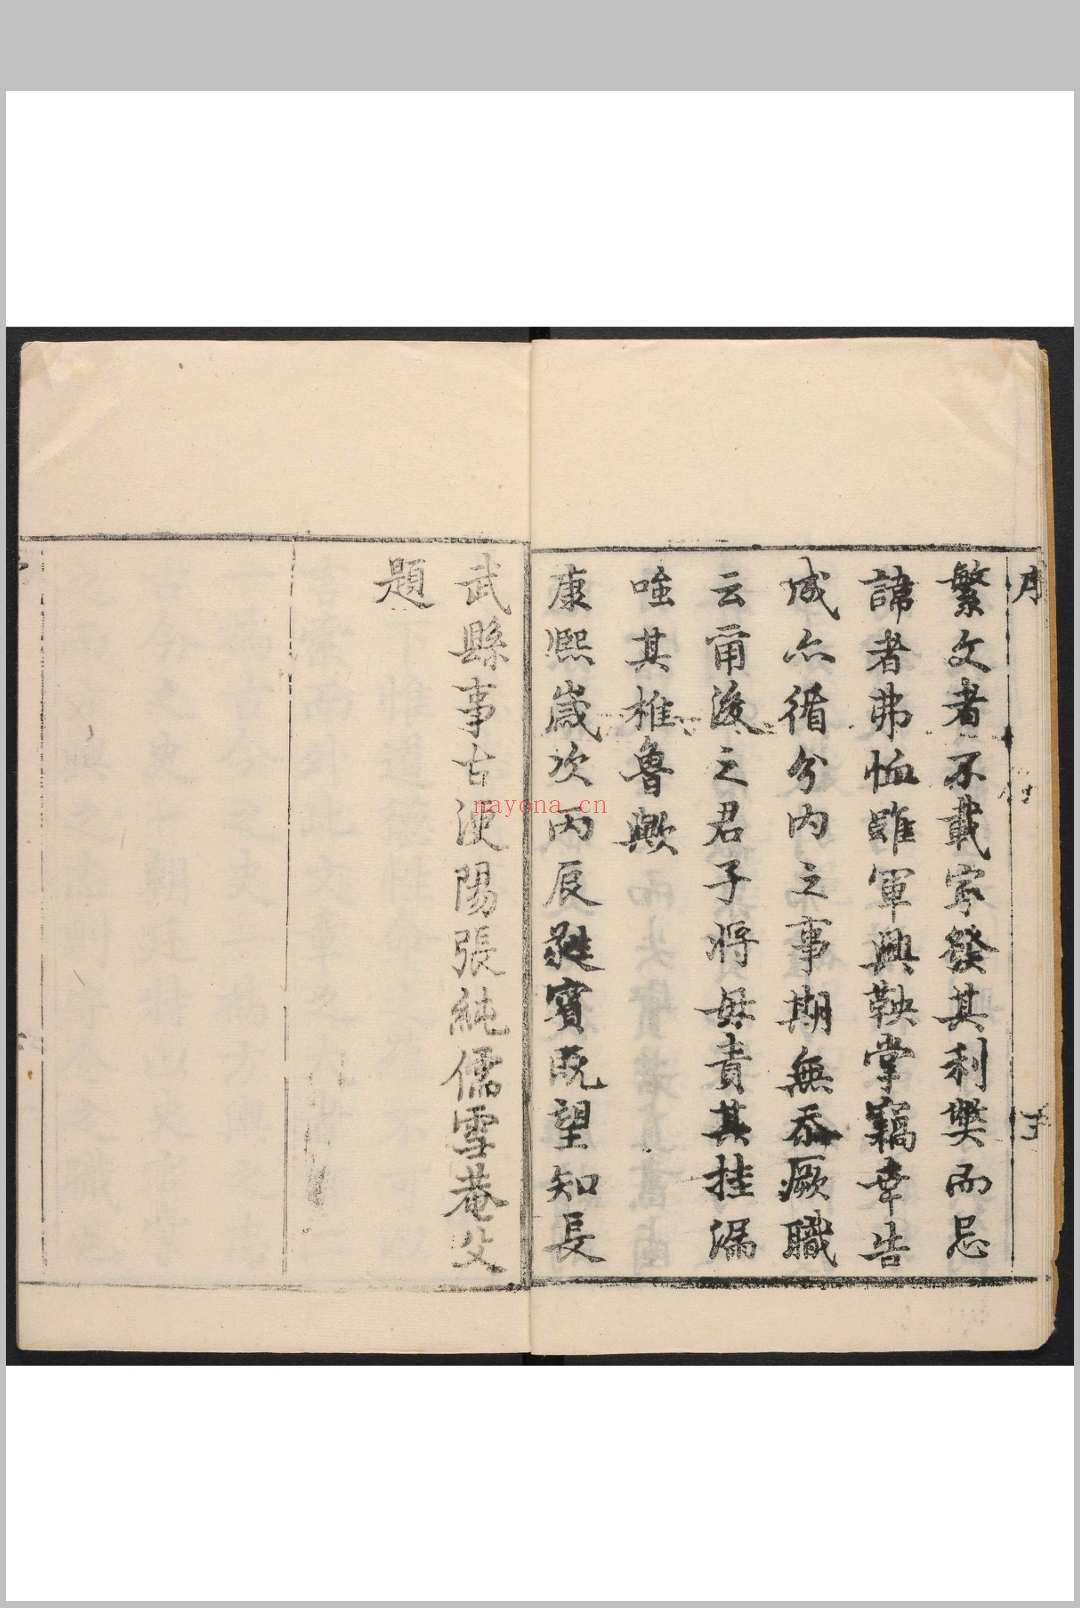 序
繁文者不載寧發其利樊而忌
諱者弗恤雖軍興鞅掌竊幸告
成亦循分内之事期無忝厥職
云爾後之君子將毋責其挂漏
嗤其椎魯歟
康熙歲次丙辰蕤賓既望知長
武縣事古涇陽張純儒雪菴父
題
nayona.cn